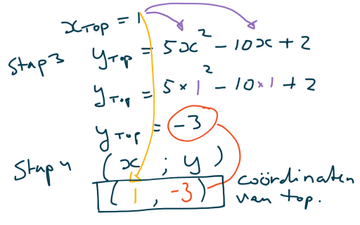 x_Top = 1
Stap 3
y_Top = 5x² - 10x + 2
y_Top = 5 × 1² - 10 × 1 + 2
y_Top = -3
Stap 4
(x ; y)
(1 , -3) coördinaten van top.